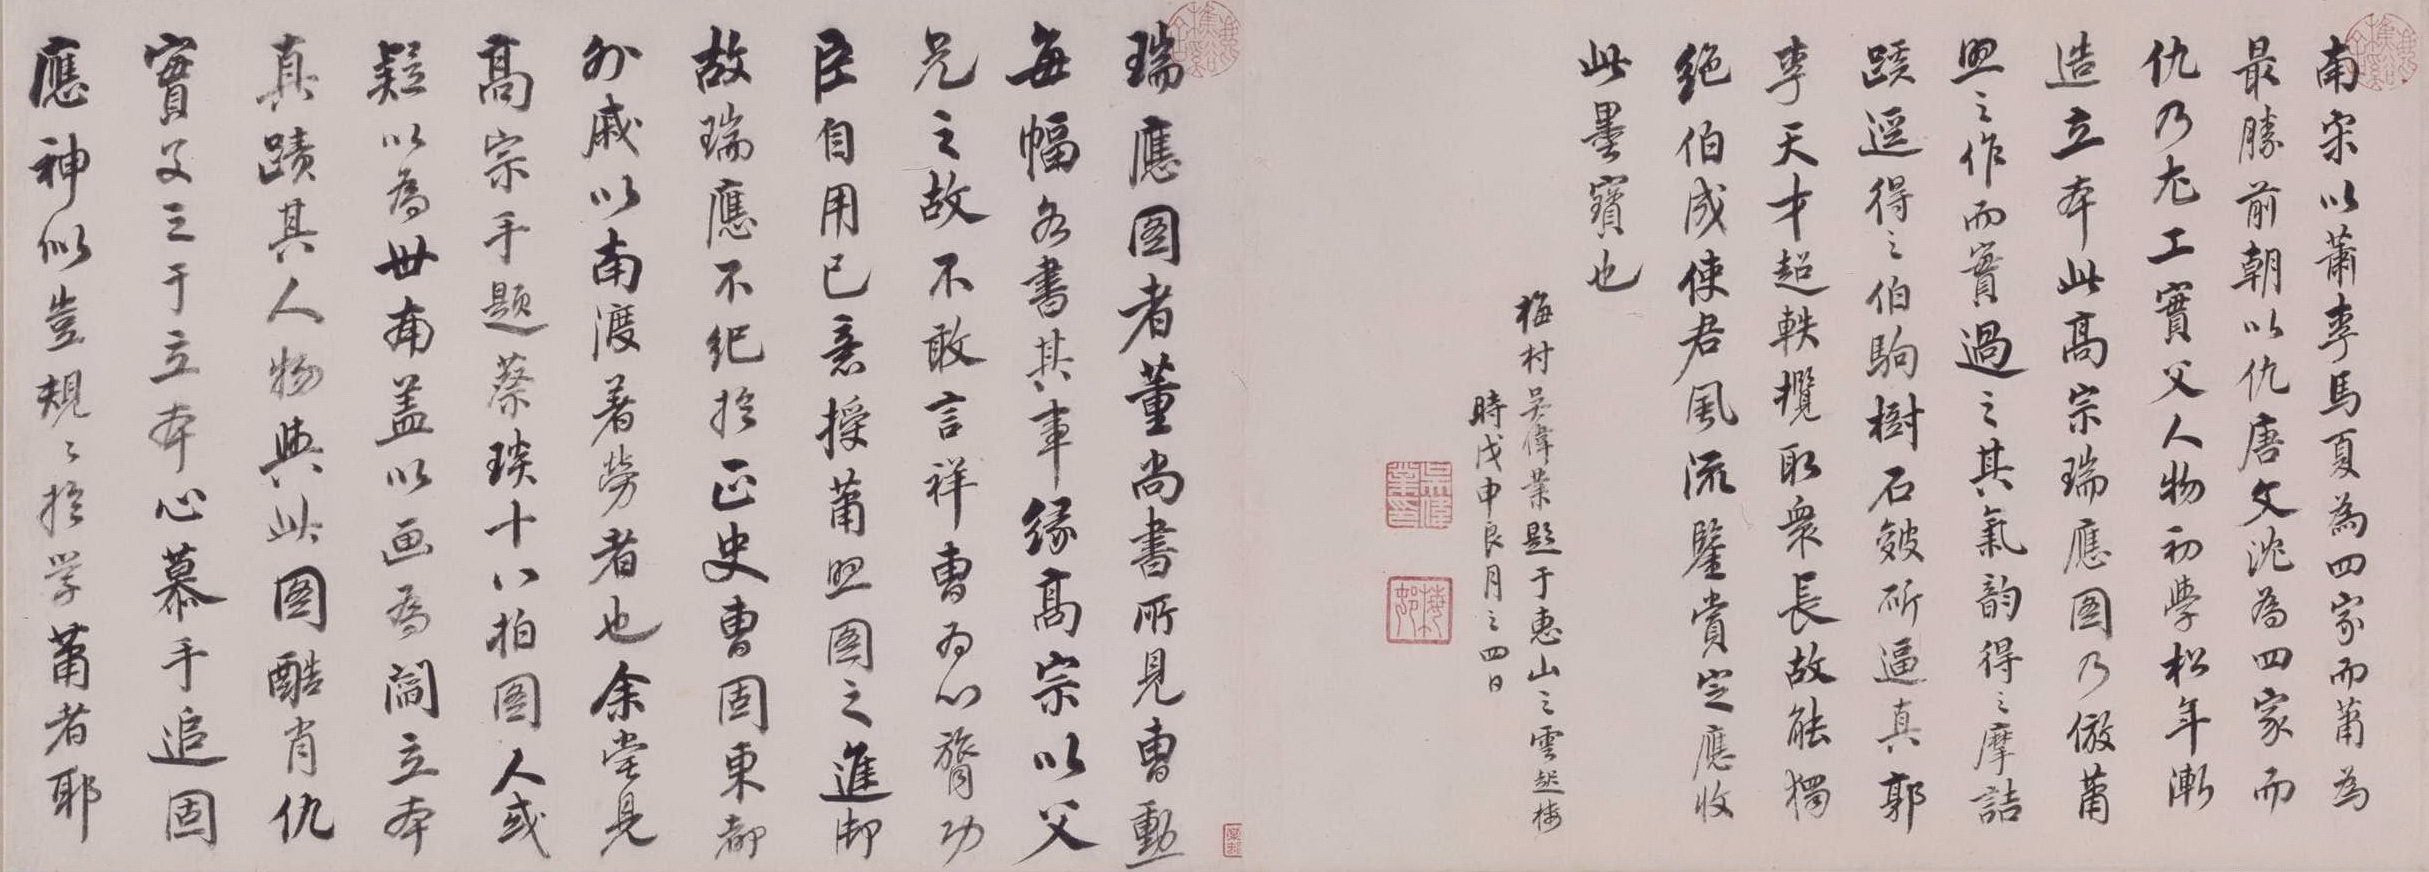 南宋以蕭李馬夏為四家而蕭為
最勝前朝以仇唐文沈為四家而
仇乃尤工實父人物初學松年漸
造立本此高宗瑞應图乃倣蕭
照之作而實過之其氣韵得之摩詰
蹊逕得之伯駒樹石皴斫逼真郭
李天才超軼攬取衆長故能獨
絕伯成使君風流鑒賞定應收
此墨寶也
梅村吳偉業題于惠山之雲起樓
時戊申良月之四日
吳偉業印
梅邨
瑞應图者董尚書所見曹勳
每幅各書其事緣高宗以父
兄之故不敢言祥曹為心膂功
臣自用已意授蕭照图之進御
故瑞應不紀於正史曹固東都
外戚以南渡著勞者也余嘗見
高宗手題蔡琰十八拍图人或
疑以為世南盖以画為閻立本
真蹟其人物與此图酷肖仇
實父三于立本心慕手追固
應神似豈規々於学蕭者耶